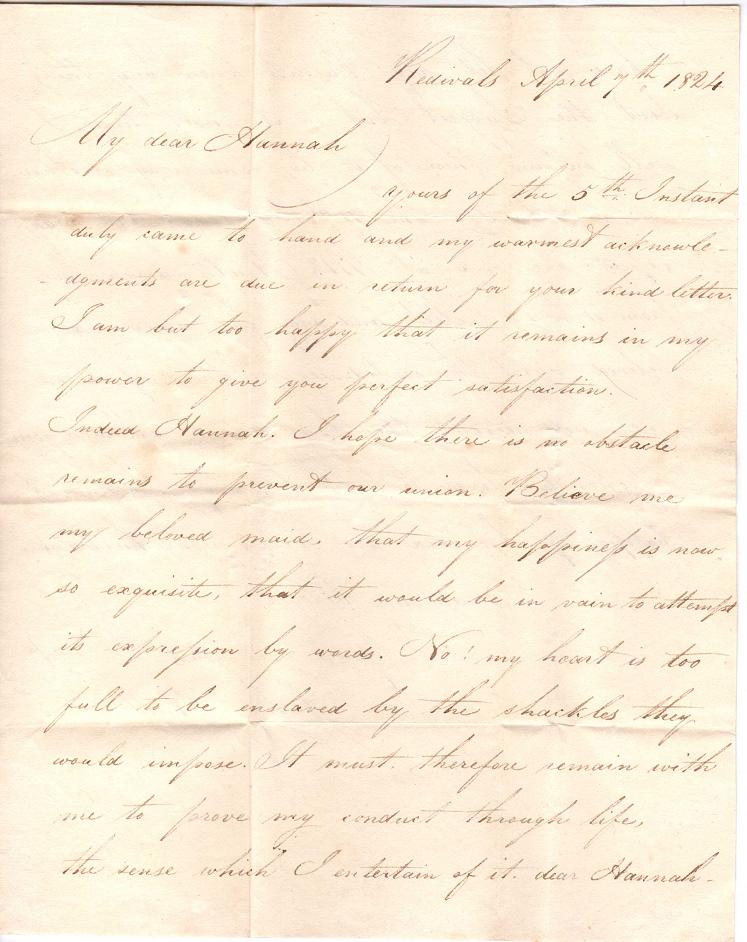 Redivals April 7th 1824
My dear Hannah
yours of the 5th Instant
duly came to hand and my warmest acknowle-
-dgments are due in return for your kind letter.
I am but too happy that it remains in my
power to give you perfect satisfaction.
Indeed Hannah. I hope there is no obstacle
remains to prevent our union. Believe me
my beloved maid. that my happineſs is now
so exquisite, that it would be in vain to attempt
its expreſsion by words. No! my heart is too
full to be enslaved by the shackles they
would impose. It must. therefore remain with
me to prove my conduct through life,
the sense which I entertain of it. dear Hannah-